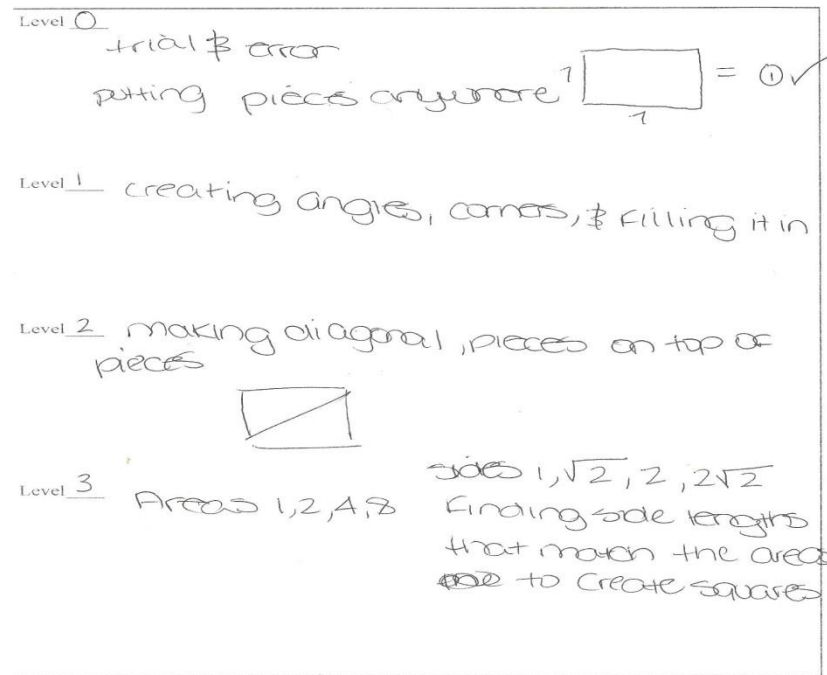 Level 0
trial & error
putting pieces anywhere 1 = ① ✓
1
Level 1 creating angles, corners, & filling it in
Level 2 making diagonal, pieces on top of
pieces
Level 3 Areas 1,2,4,8
sides 1, √2, 2, 2√2
Finding side lengths
that match the areas
to create squares